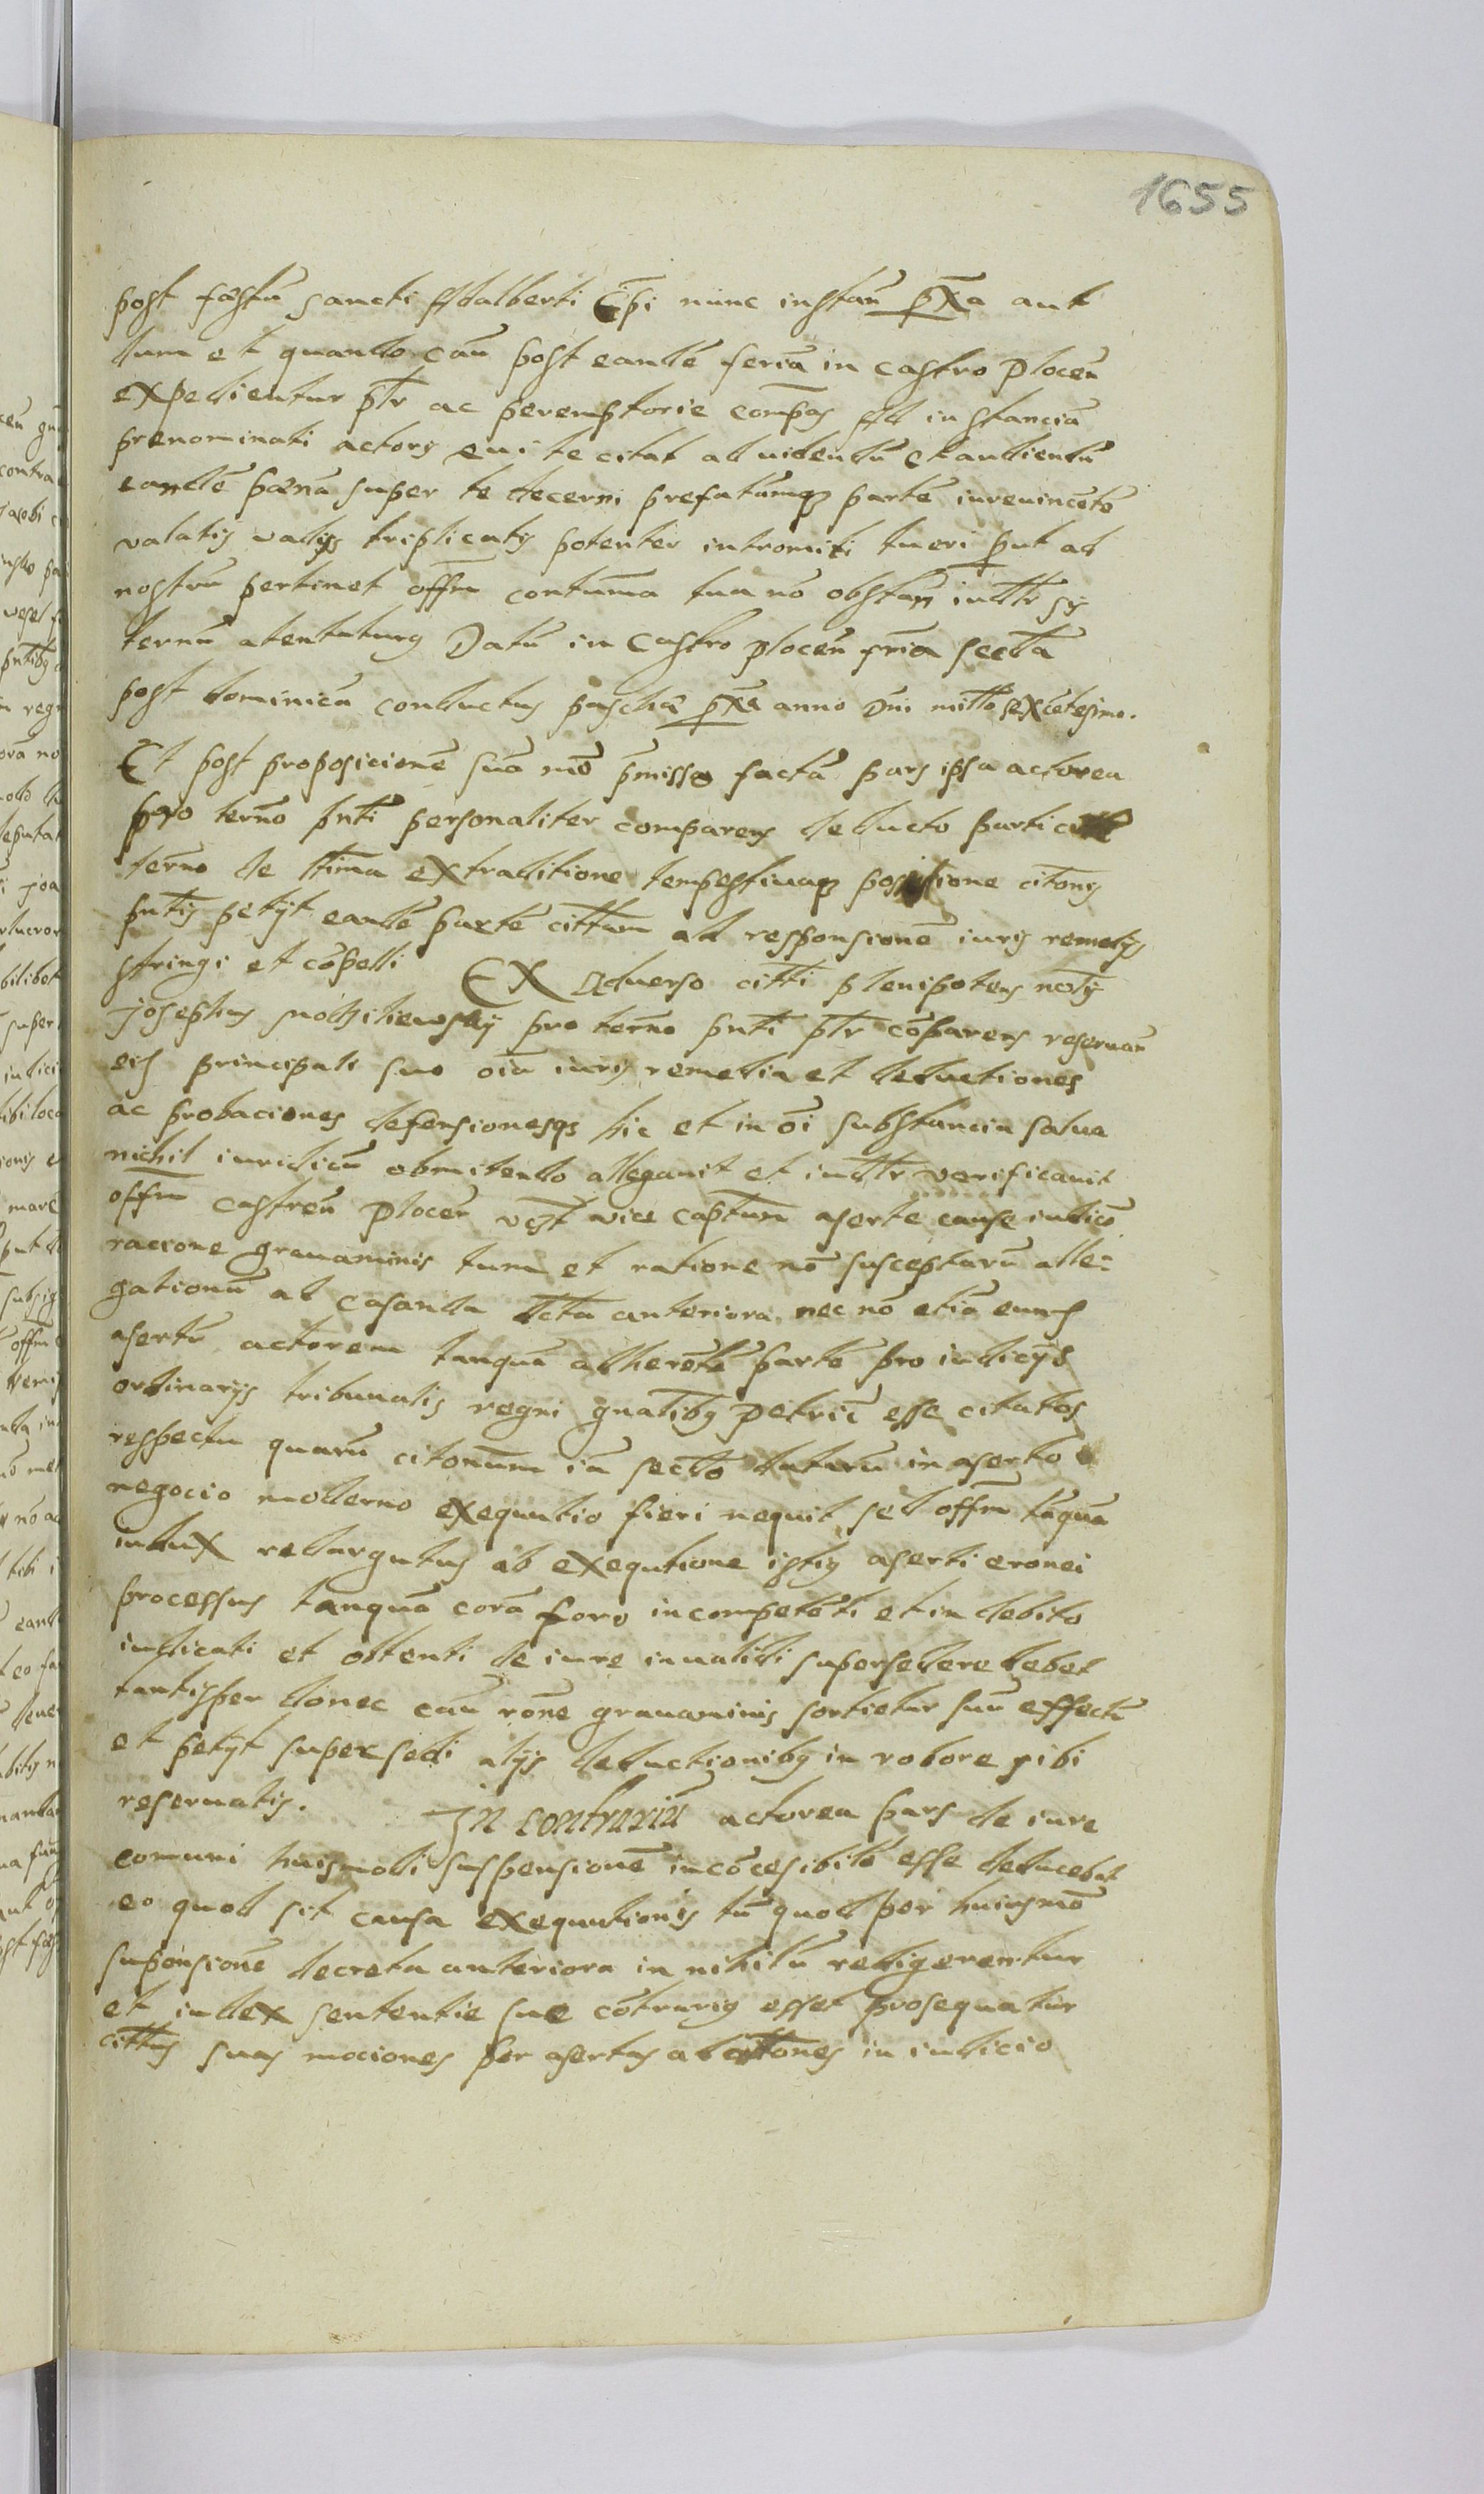 1655
post fæstū sancti Adalberti Ep̄i nunc instan̄ p̄x̄a aut
dum et quando cau̅ post eandē feriā in castro Plocen̄
expedientur pt̄r ac peremptorie comp̄as Ad instanciā
prenominati actoris qui te citat ad uidendū et audiendū
eandē pænā super te decerni prefatāmq̄ partē in reuincēdo
valatis valijs triplicatis potenter intromiti tueri p̄ut ad
nostrū pertinet off̄m contum̄a tua nō obstan̄ iudtr̄ sis
ternū atentaturus Datū in Castro plocen̄ fr̄ia secd̄a
post dominicā conductus paschæ p̄x̄a anno Dn̄i mill̄o sexcētesimo.
Et post proposicionē suā mō p̄misso factā pars ipsa actorea
pro ter̄no pn̄ti personaliter comparens deducto parti citt̄
ter̄no de lt̄ima extraditione tempestiuaq̄ positione citōnis
pn̄tis petÿt eandē partē citt̄am ad responsionē iuris remedijs
stringi et cōpelli Ex Aduerso citt̄i plenipotens nob̄is
Josephus pro ter̄no pn̄ti pt̄r cōparens reseruan̄
eid principali suo oīa iuris remedia et deductiones
ac probaciones defensionesqs hic et in ōi substancia salua
nichil iuridicū obmitendo allegauit et iudtr̄ verificauit
off̄m castren̄ Plocen̄ vice capt̄um aserte cause iudicō
racione grauaminis tum et ratione nō susceptarū alle:
gationū ad casanda dcta anteriora nec nō etiā eund
asertū actorem tanquā adherētē partē pro iudicÿs
ordinarÿs tribunalis regni gn̄alibus petricī esse citatos
respectu quarū citōnum iā secdo datarū in aserto
negocio moderno exequutio fieri nequit sed off̄m tāquā
iudex redargutus ab exequtione istius aserti eronei
processus tanquā corā foro incompetēti et indebito
iudicati et obtenti de iure inualidi supersedere debet
tantisper donec cau̅ rōne grauaminis sortietur suū effectū
et petÿt supersedi alÿs deductionibus in robore sibi
reseruatis. In contrariū actorea pars de iure
comuni huismodi suspensionē incōcesibilē esse deducebat
eo quod sit causa exequutionis tū quod per huiusmō
suspōnsionē decreta anteriora in nihilū redigerentur
et iudex sententie sue cōtrarius esset prosequatur
citt̄us suas mociones per asertas adcitt̄ones in iudicio